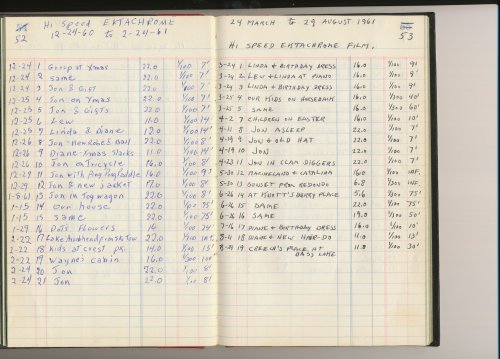 52
Hi Speed EKTACHROME
12-24-60 to 2-24-61
12-24 1 Group at Xmas 22.0 1/100 7'
12-24 2 same 22.0 1/100 7'
12-24 3 Jon & Gift 22.0 1/100 7'
12-25 4 Jon on Xmas 22.0 1/100 7'
12-25 5 Jon & Gifts 22.0 1/100 7'
12-25 6 Lew 11.0 1/100 14'
12-25 7 Linda & Diane 1/100 14'
12-26 8 Jon & Ball 22.0 1/100 8'
12-26 9 Diane Xmas Slacks 11.0 1/100 14'
12-26 10 Jon on Tricycle 16.0 1/100 8'
12-29 11 Jon with Ping Pong Paddle 16.0 1/100 9'
12-29 12 Jon & new jacket 1/100 8'
1-8-61 13 Jon in Toy wagon 22.0 1/100 8'
1-15 14 our house 22.0 1/100 75'
1-15 15 same 22.0 1/100 75'
1-29 16 Dot's Flowers 14
2-22 17 Lake Arrowhead from 22.0 1/100 inf.
2-22 18 Kids at Crest pk. 14.0 1/100 15'
2-22 19 Wayne's cabin 16.0 100'
2-24 20 Jon 22.0 1/100 8'
2-24 21 Jon 22.0 1/100 8'
24 MARCH to 29 AUGUST 1961
53
HI SPEED EKTACHROME FILM.
3-24 1 LINDA & BIRTHDAY DRESS 16.0 1/100 9'
3-24 2 LEW & LINDA AT PIANO 16.0 1/100 9'
3-24 3 LINDA & BIRTHDAY DRESS 16.0 1/100 9'
3-25 4 OUR KIDS ON HORSEBACK 16.0 1/300 40'
3-25 5 SAME 16.0 1/300 60'
4-2 7 CHILDREN ON EASTER 16.0 1/100 10'
4-11 8 JON ASLEEP 22.0 1/100 7'
4-19 9 JON & OLD HAT 22.0 1/100 7'
4-19 10 JON 22.0 1/100 7'
4-23 11 JON IN CLAM DIGGERS 22.0 1/100 7'
5-30 12 MARINELAND & CATALINA 16.0 1/100 INF.
5-30 13 SUNSET FROM REDONDO 6.8 1/300 INF.
6-26 14 AT HYATT'S BERRY PLACE 5.6 1/300 75'
6-26 15 SAME 22.0 75'
6-26 16 SAME 19.0 1/300 50'
7-16 17 DIANE & BIRTHDAY DRESS 16.0 1/300 10'
8-11 18 DIANE & NEW HAIR-DO 11.0 1/100 13'
8-29 19 CREECH'S PLACE AT 11.0 1/100 30'
BASS LAKE